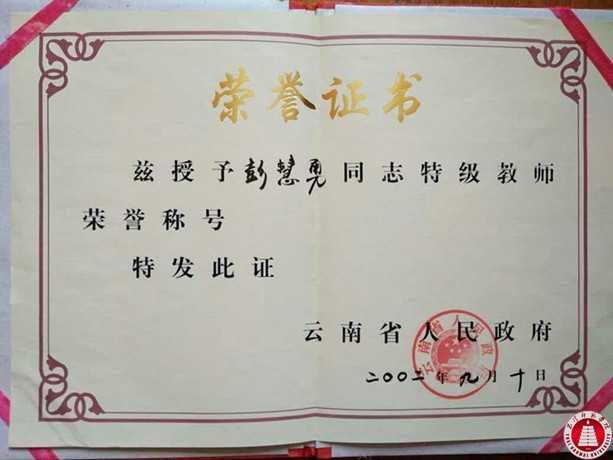 荣誉证书
兹授予彭慧勇同志特级教师
荣誉称号
特发此证
云南省人民政府
二〇〇二年九月十日
云南省人民政府